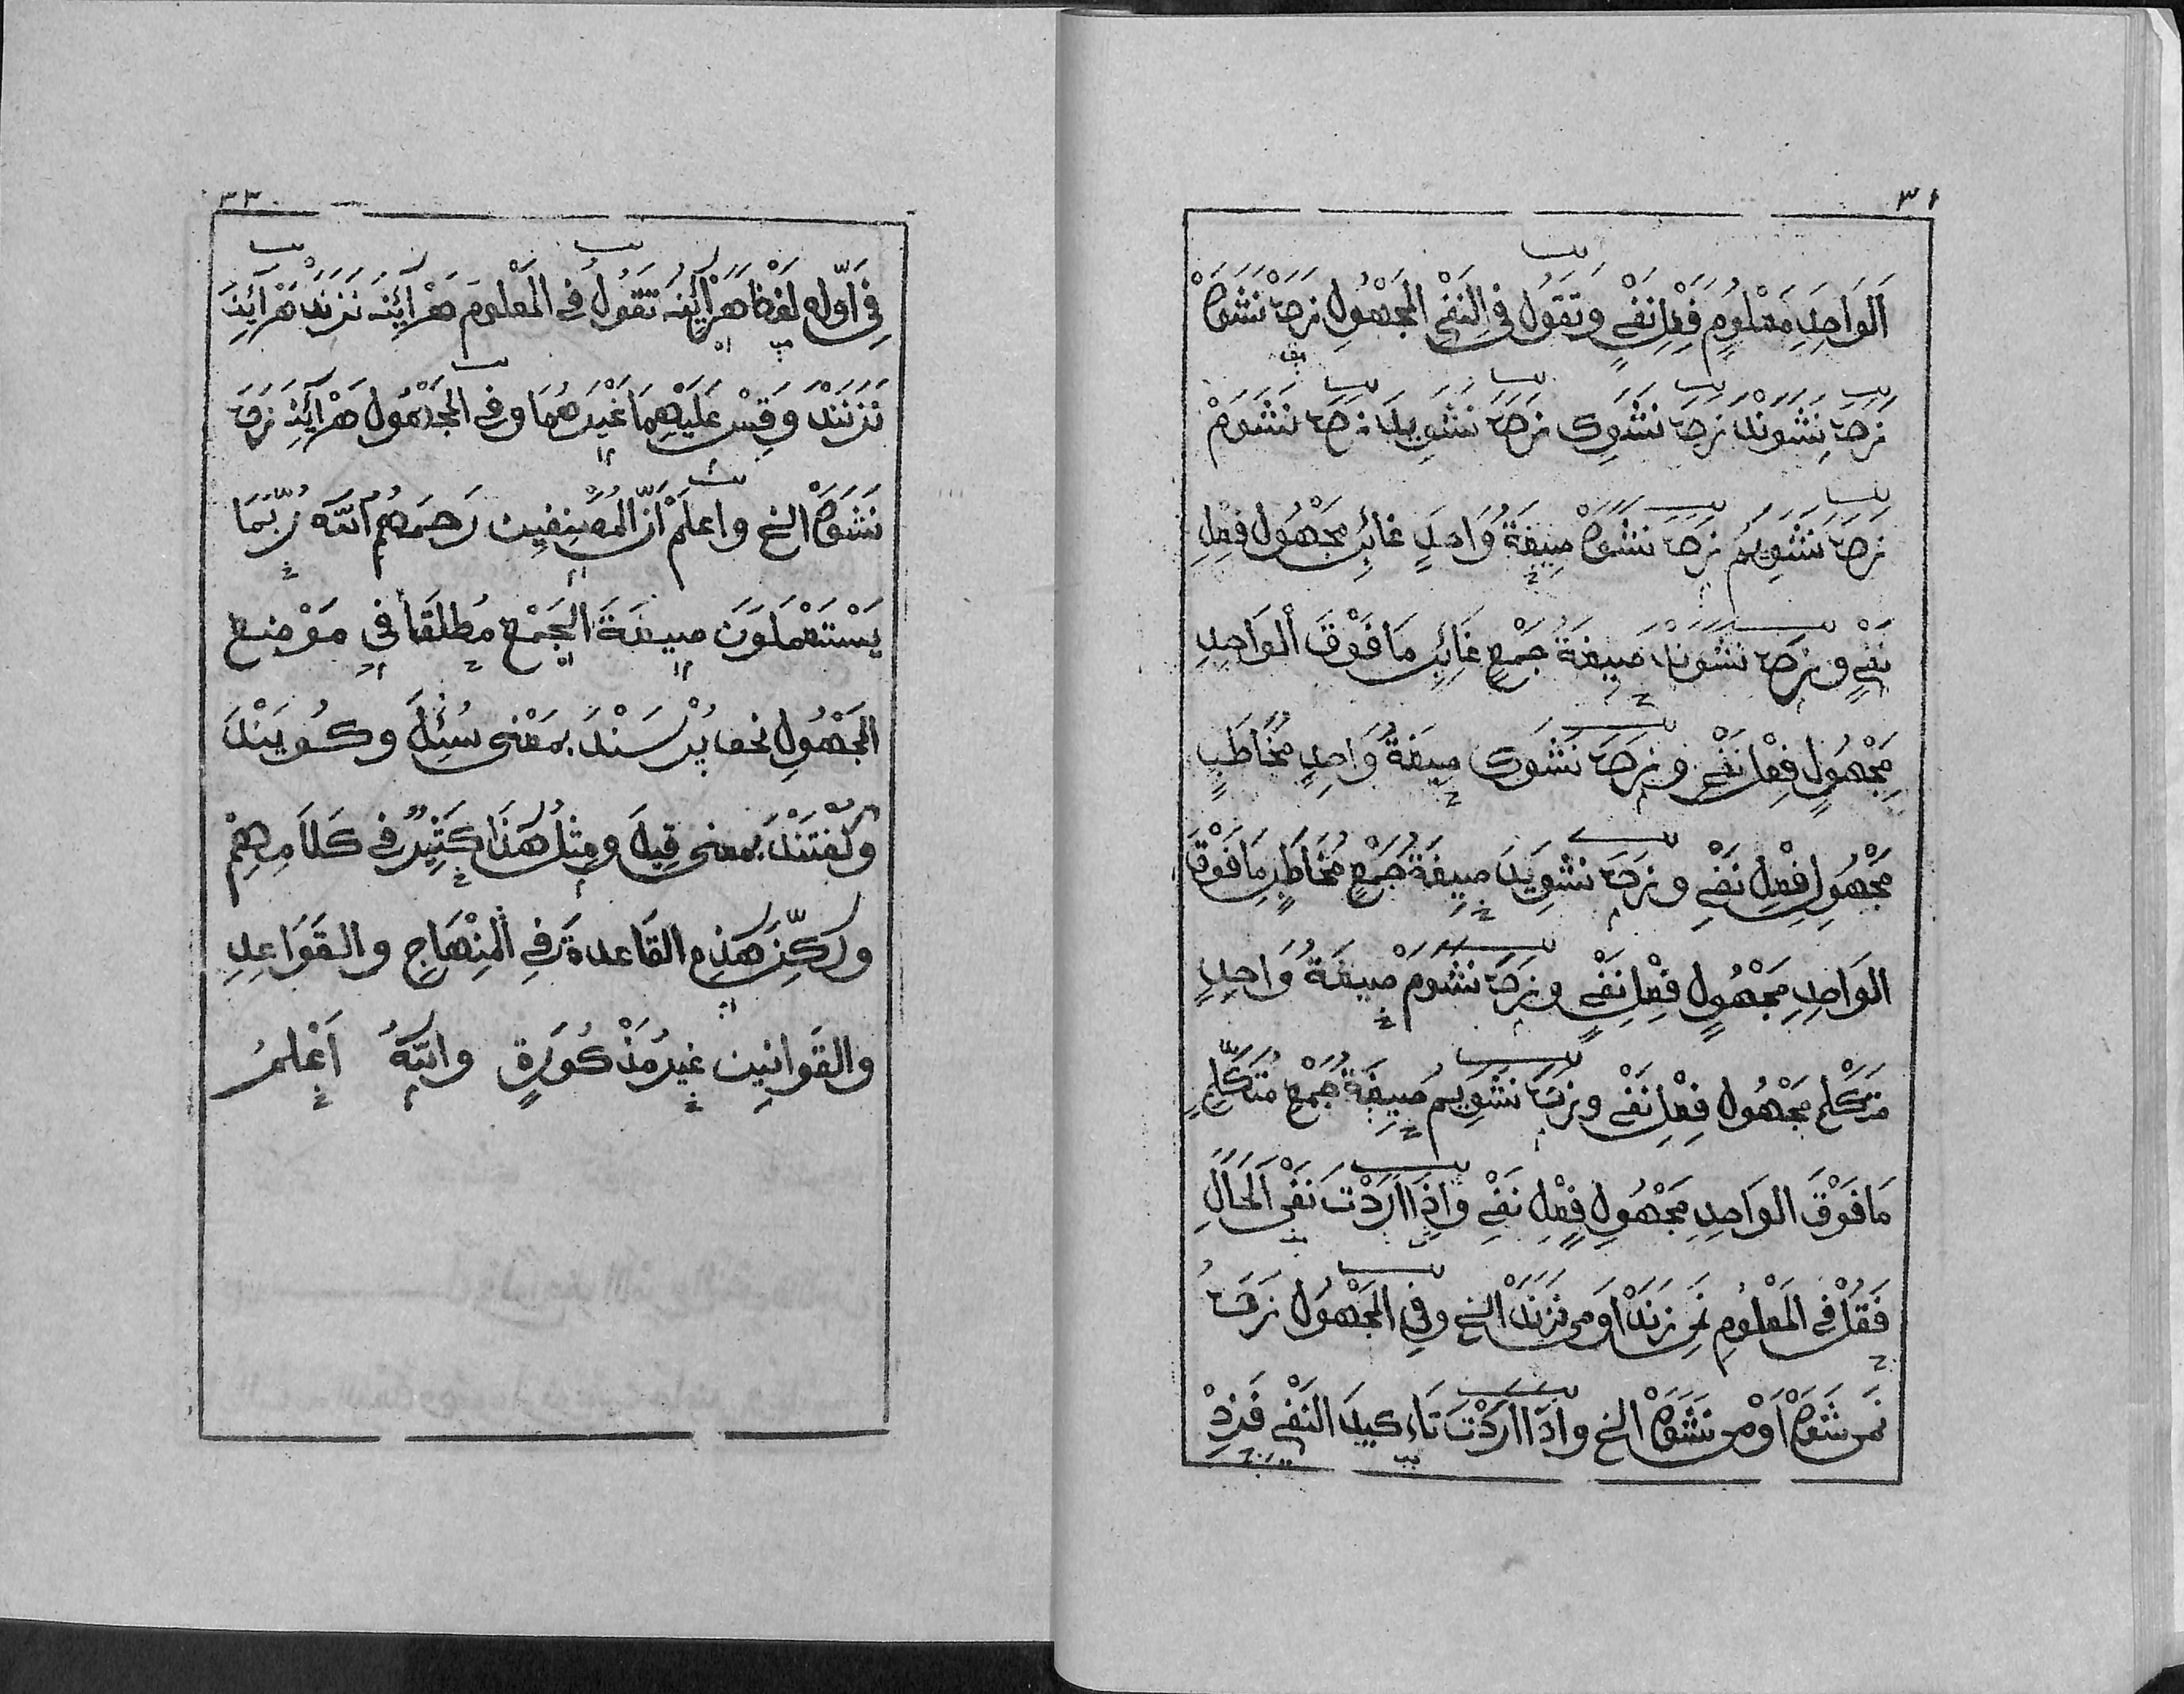 ٣١
اَلوَاحِدِ مَعْلُومٍ فِعْلِ نَفْيٍ وَتَقُولُ فِي النَفْيِ المَجْهُولِ زده نَشَوَد
زده نشوند زده نشوی زده نشوید زده نشوم
زده نشویم زده نشود صِيغَةُ وَاحِدٍ غائِبٍ مَجْهُولِ فِعْلِ
نَفْيٍ و زده نشوند صِيغَةُ جَمْعٍ غَائِبٍ مَا فَوْقَ الوَاحِدِ
مَجْهُولِ فِعْلِ نَفْيٍ و زده نشوی صِيغَةُ وَاحِدٍ مُخَاطَبٍ
مَجْهُولِ فِعْلِ نَفْيٍ و زده نشوید صِيغَةُ جَمْعٍ مُخَاطَبٍ مَا فَوْقَ
الوَاحِدِ مَجْهُولِ فِعْلِ نَفْيٍ و زده نشوم صِيغَةُ وَاحِدٍ
متكلم مَجْهُولِ فِعْلِ نَفْيٍ و زده نشویم صِيغَةُ جَمْعٍ مُتَكَلِّمٍ
مَا فَوْقَ الوَاحِدِ مَجْهُولِ فِعْلِ نَفْيٍ وَإِذَا أَرَدْتَ نَفْيَ الحَالِ
فَقُلْ فِي المَعْلُومِ نمی زند اَوْ می نزند الخ وفِي المَجْهُولِ زده
نمی شود اَوْ می نشود الخ واذَا اَرَدْتَ تَاءكيدَ النَفْيِ فَزِدْ
٣٣
فِي اَوَّلِهِ لَفْظَ هَرْآيِنَه تَقُولُ فِي المَعْلُومِ هَرْآيِنَه نَزَنَد هَرْآيِنَه
نَزَنَنْد وَقِسْ عَلَيْهِمَا غَيْرَهُمَا وَفِي المَجْهُولِ هَرْآيِنَه زده
نَشَوَد الخ واعلَمْ اَنَّ المُصَنِفِينَ رَحِمَهُمُ اللّه رُبَّمَا
يَسْتَعْمِلُونَ صِيغَةَ الجَمْعِ مُطلَقًا فِي مَوْضِع
المَجْهُولِ نحو پُرْسَنْد بِمَعْنى سُئِلَ وَكُويَنْد
وكُفْتَنْد بمعنى قِيلَ ومِثْلُ هَذَا كَثِيرٌ فِي كَلَامِهِمْ
وَلَكِنَّ هَذِهِ القَاعِدةَ فِي المِنْهَاجِ والقَوَاعِدِ
والقَوانِينِ غيرُ مَذْكُورَةٍ واللّهُ اَعْلَمُ